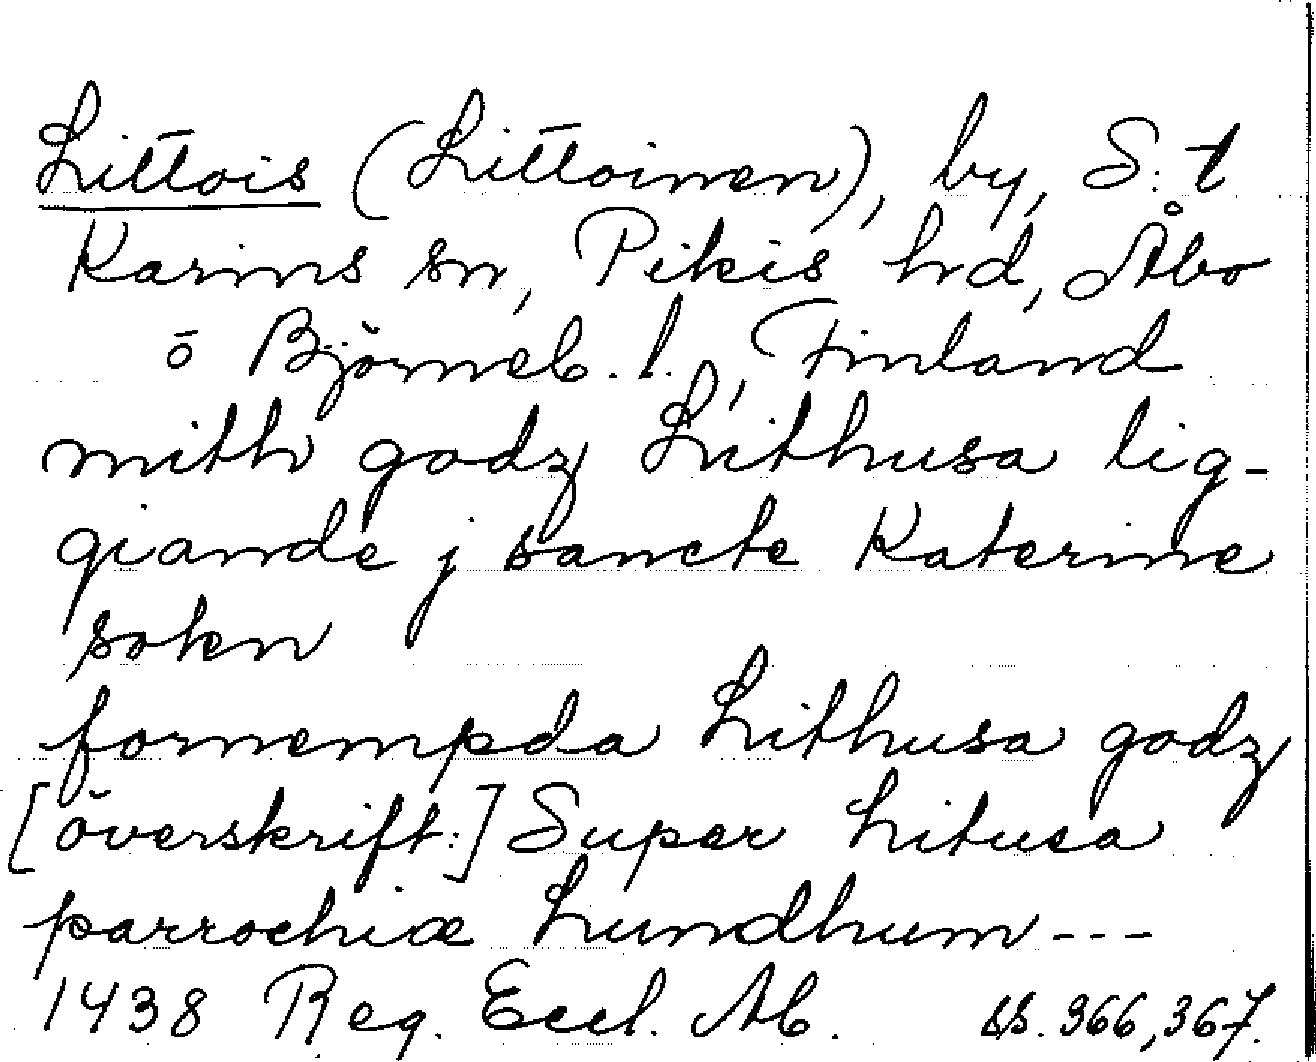 Littois (Littoinen), by, S:t
Karins sn, Pikis hd, Åbo
o Björneb. l., Finland
mith godz Lithusa lig-
giande j sancte Katerine
sokn
fornempda Lithusa godz
[överskrift:] Super Litusa
parrochiæ Lundhum ---
1438 Reg. Eccl. Ab. ss. 366, 367.